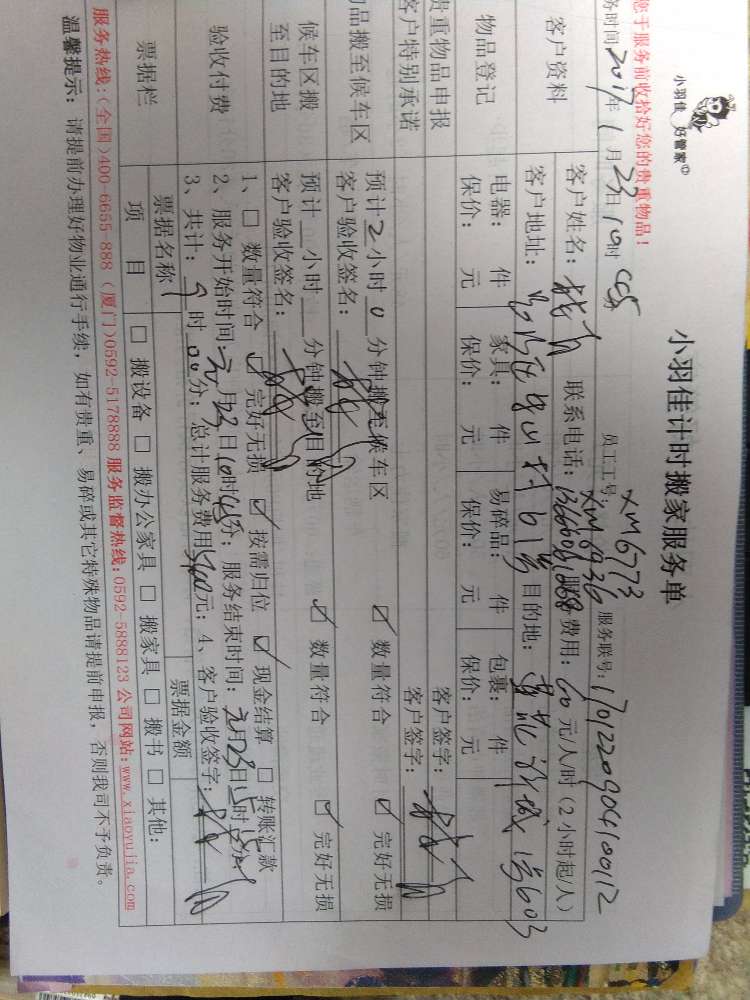 小羽佳 好管家
小羽佳计时搬家服务单
您于服务前收拾好您的贵重物品!
员工工号: XM6773
XM6936
服务联号: 170122090410012
务时间 2017年 1月 23日 10时
客户资料
客户姓名: 联系电话: 服务费用: 60 元/人/时 (2小时起/人)
客户地址: 目的地: 603
物品登记
电器: 件 家具: 件 易碎品: 件 包裹: 件
保价: 元 保价: 元 保价: 元 保价: 元
贵重物品申报 客户签字:
客户特别承诺 客户签字:
物品搬至候车区
预计 2 小时 0 分钟搬至候车区 ☑ 数量符合 ☑ 完好无损
客户验收签名:
候车区搬至目的地
预计 小时 分钟搬至目的地 ☑ 数量符合 ☑ 完好无损
客户验收签名:
验收付费
1、□ 数量符合 ☑ 完好无损 ☑ 按需归位 ☑ 现金结算 □ 转账汇款
2、服务开始时间: 月 23日 10时 分; 服务结束时间: 月 23日 15时 分;
3、共计: 9 时 00 分; 总计服务费用 540 元; 4、客户验收签字:
票据栏
票据名称 票据金额
项 目 □ 搬设备 □ 搬办公家具 □ 搬家具 □ 搬书 □ 其他:
服务热线:(全国)400-6655-888 (厦门)0592-5178888 服务监督热线:0592-5888123 公司网站:www.xiaoyujia.com
温馨提示: 请提前办理好物业通行手续, 如有贵重、易碎或其它特殊物品请提前申报, 否则我司不予负责。